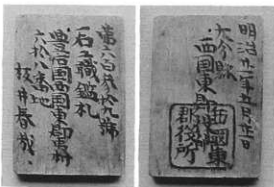 第六百弐拾九號
石工職鑑札
豊后國西國東郡
六拾八番地
板井春哉
明治廿一年五月
大分縣
西國東郡
西國東
郡役所